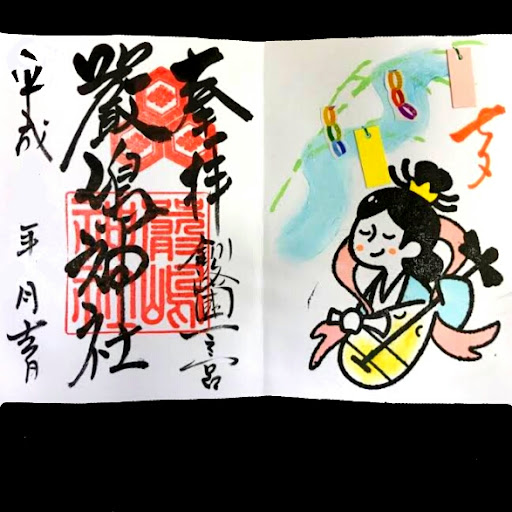 七夕
奉拝
釧路國一之宮
嚴嶋神社
嚴嶋神社
平成 年 月 吉日